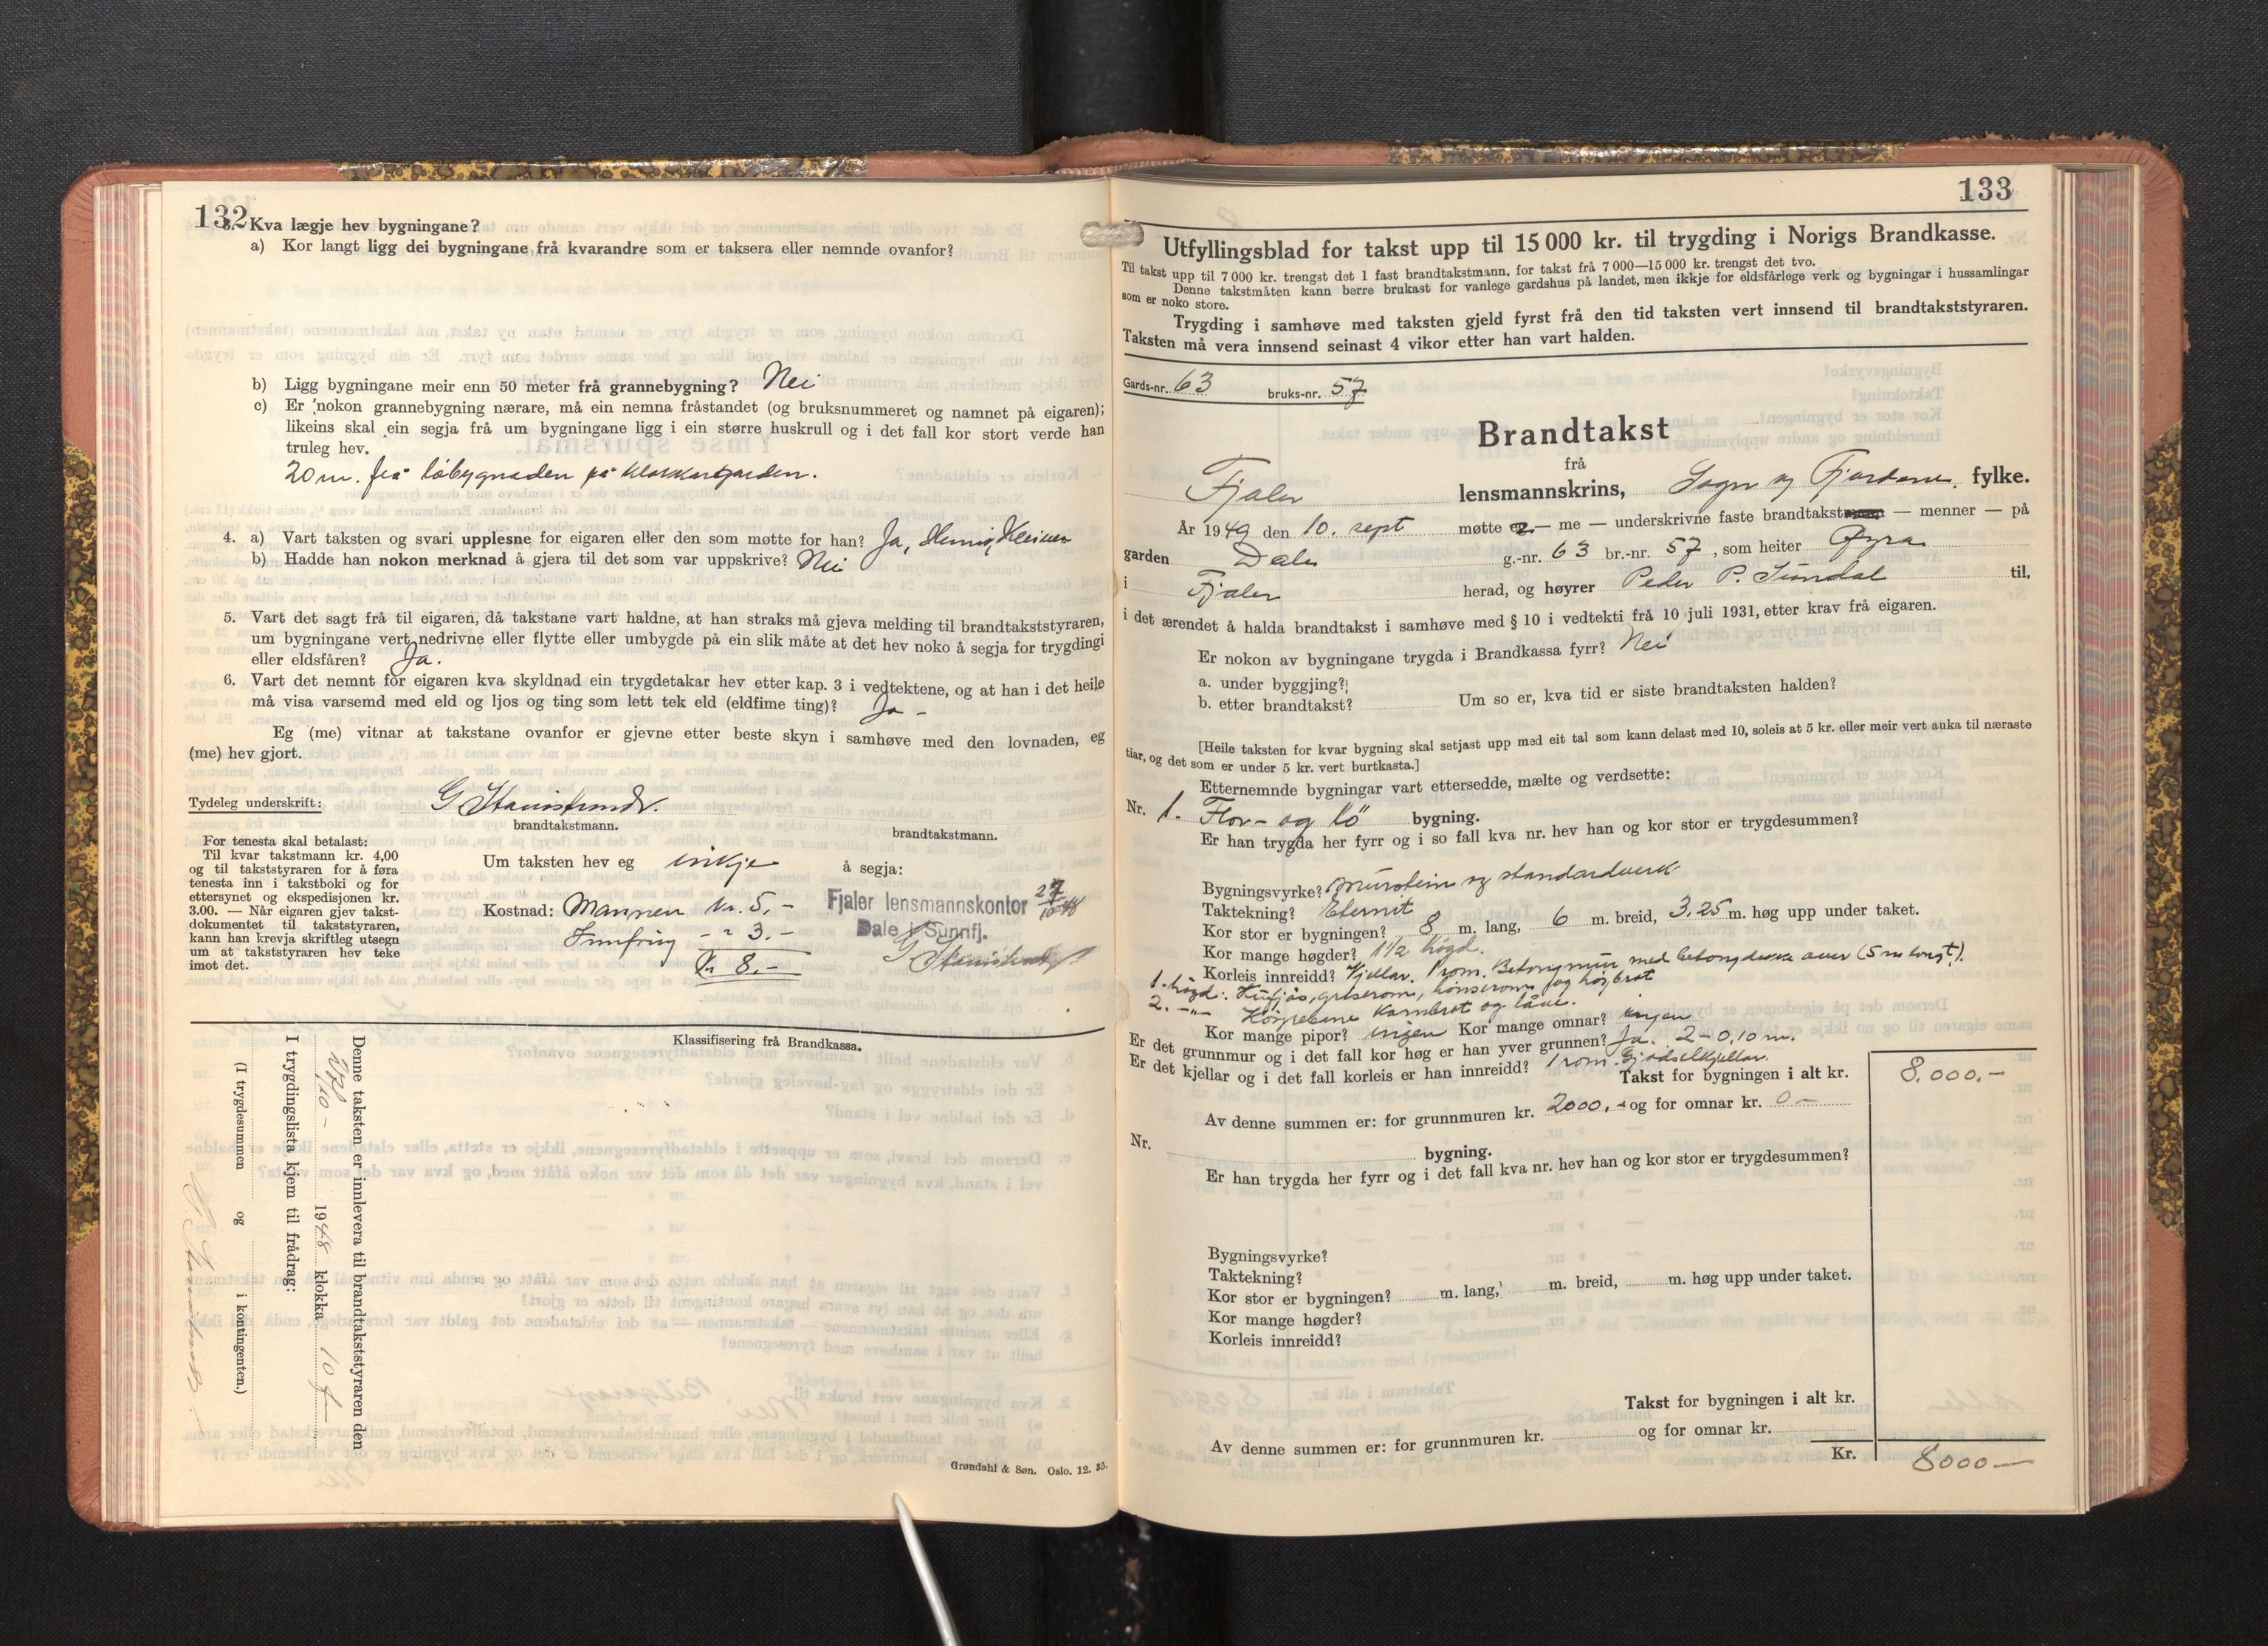 132
3. Kva lægje hev bygningane?
a) Kor langt ligg dei bygningane frå kvarandre som er taksera eller nemnde ovanfor?
b) Ligg bygningane meir enn 50 meter frå grannebygning? Nei
c) Er nokon grannebygning nærare, må ein nemna fråstandet (og bruksnummeret og namnet på eigaren);
likeins skal ein segja frå um bygningane ligg i ein større huskrull og i det fall kor stort verde han
truleg hev.
20 m. frå löbygnaden på Klokkargarden.
4. a) Vart taksten og svari upplesne for eigaren eller den som møtte for han? Ja,
b) Hadde han nokon merknad å gjera til det som var uppskrive? Nei
5. Vart det sagt frå til eigaren, då takstane vart haldne, at han straks må gjeva melding til brandtakststyraren,
um bygningane vert nedrivne eller flytte eller umbygde på ein slik måte at det hev noko å segja for trygdingi
eller eldsfåren? Ja.
6. Vart det nemnt for eigaren kva skyldnad ein trygdetakar hev etter kap. 3 i vedtektene, og at han i det heile
må visa varsemd med eld og ljos og ting som lett tek eld (eldfime ting)? Ja -
Eg (me) vitnar at takstane ovanfor er gjevne etter beste skyn i samhøve med den lovnaden, eg
(me) hev gjort.
Tydeleg underskrift:
brandtakstmann.
brandtakstmann.
For tenesta skal betalast:
Til kvar takstmann kr. 4,00
og til takststyraren for å føra
tenesta inn i takstboki og for
ettersynet og ekspedisjonen kr.
3.00. — Når eigaren gjev takst-
dokumentet til takststyraren,
kann han krevja skriftleg utsegn
um at takststyraren hev teke
imot det.
Um taksten hev eg inkje å segja:
Kostnad: Mannen kr. 5.-
Innföring - " 3.-
Kr 8.-
Fjaler lensmannskontor 27/10-48
Dale i Sunnfj.
Klassifisering frå Brandkassa.
Denne taksten er innlevera til brandtakststyraren den
27/10 - 1948 klokka 10 fm
I trygdingslista kjem til frådrag:
(I trygdesummen og i kontingenten.)
Grøndahl & Søn. Oslo. 12. 35.
133
Utfyllingsblad for takst upp til 15 000 kr. til trygding i Norigs Brandkasse.
Til takst upp til 7 000 kr. trengst det 1 fast brandtakstmann, for takst frå 7 000—15 000 kr. trengst det tvo.
Denne takstmåten kann berre brukast for vanlege gardshus på landet, men ikkje for eldsfårlege verk og bygningar i hussamlingar
som er noko store.
Trygding i samhøve med taksten gjeld fyrst frå den tid taksten vert innsend til brandtakststyraren.
Taksten må vera innsend seinast 4 vikor etter han vart halden.
Gards-nr. 63 bruks-nr. 57
Brandtakst
frå
Fjaler lensmannskrins, Sogn og Fjordane fylke.
År 1949 den 10. sept møtte — me — underskrivne faste brandtakst — menner — på
garden Dale g.-nr. 63 br.-nr. 57, som heiter Öyra
i Fjaler herad, og høyrer Peder P. Sundal til,
i det ærendet å halda brandtakst i samhøve med § 10 i vedtekti frå 10 juli 1931, etter krav frå eigaren.
Er nokon av bygningane trygda i Brandkassa fyrr? Nei
a. under byggjing?
b. etter brandtakst? Um so er, kva tid er siste brandtaksten halden?
[Heile taksten for kvar bygning skal setjast upp med eit tal som kann delast med 10, soleis at 5 kr. eller meir vert auka til næraste
tiar, og det som er under 5 kr. vert burtkasta.]
Etternemnde bygningar vart ettersedde, mælte og verdsette:
Nr. 1. Flor- og lö bygning.
Er han trygda her fyrr og i so fall kva nr. hev han og kor stor er trygdesummen?
Bygningsvyrke? Murstein og standardverk
Taktekning? Eternit
Kor stor er bygningen? 8 m. lang, 6 m. breid, 3.25 m. høg upp under taket.
Kor mange høgder? 1 1/2 högd.
Korleis innreidd? Kjellar. 1 rom. Betongmur med betongdekke over (5 m langt).
1. högd: Kufjös, griserom, hönserom og höybrot
2. -"- Höyrebene kornbrot og låve.
Kor mange pipor? ingen Kor mange omnar? ingen
Er det grunnmur og i det fall kor høg er han yver grunnen? Ja. 2 - 0,10 m.
Er det kjellar og i det fall korleis er han innreidd? 1 rom. Gjödselkjellar.
Takst for bygningen i alt kr. 8.000.-
Av denne summen er: for grunnmuren kr. 2000.- og for omnar kr. 0 -
Nr. bygning.
Er han trygda her fyrr og i det fall kva nr. hev han og kor stor er trygdesummen?
Bygningsvyrke?
Taktekning?
Kor stor er bygningen? m. lang, m. breid, m. høg upp under taket.
Kor mange høgder?
Korleis innreidd?
Takst for bygningen i alt kr.
Av denne summen er: for grunnmuren kr. og for omnar kr.
Kr. 8000—